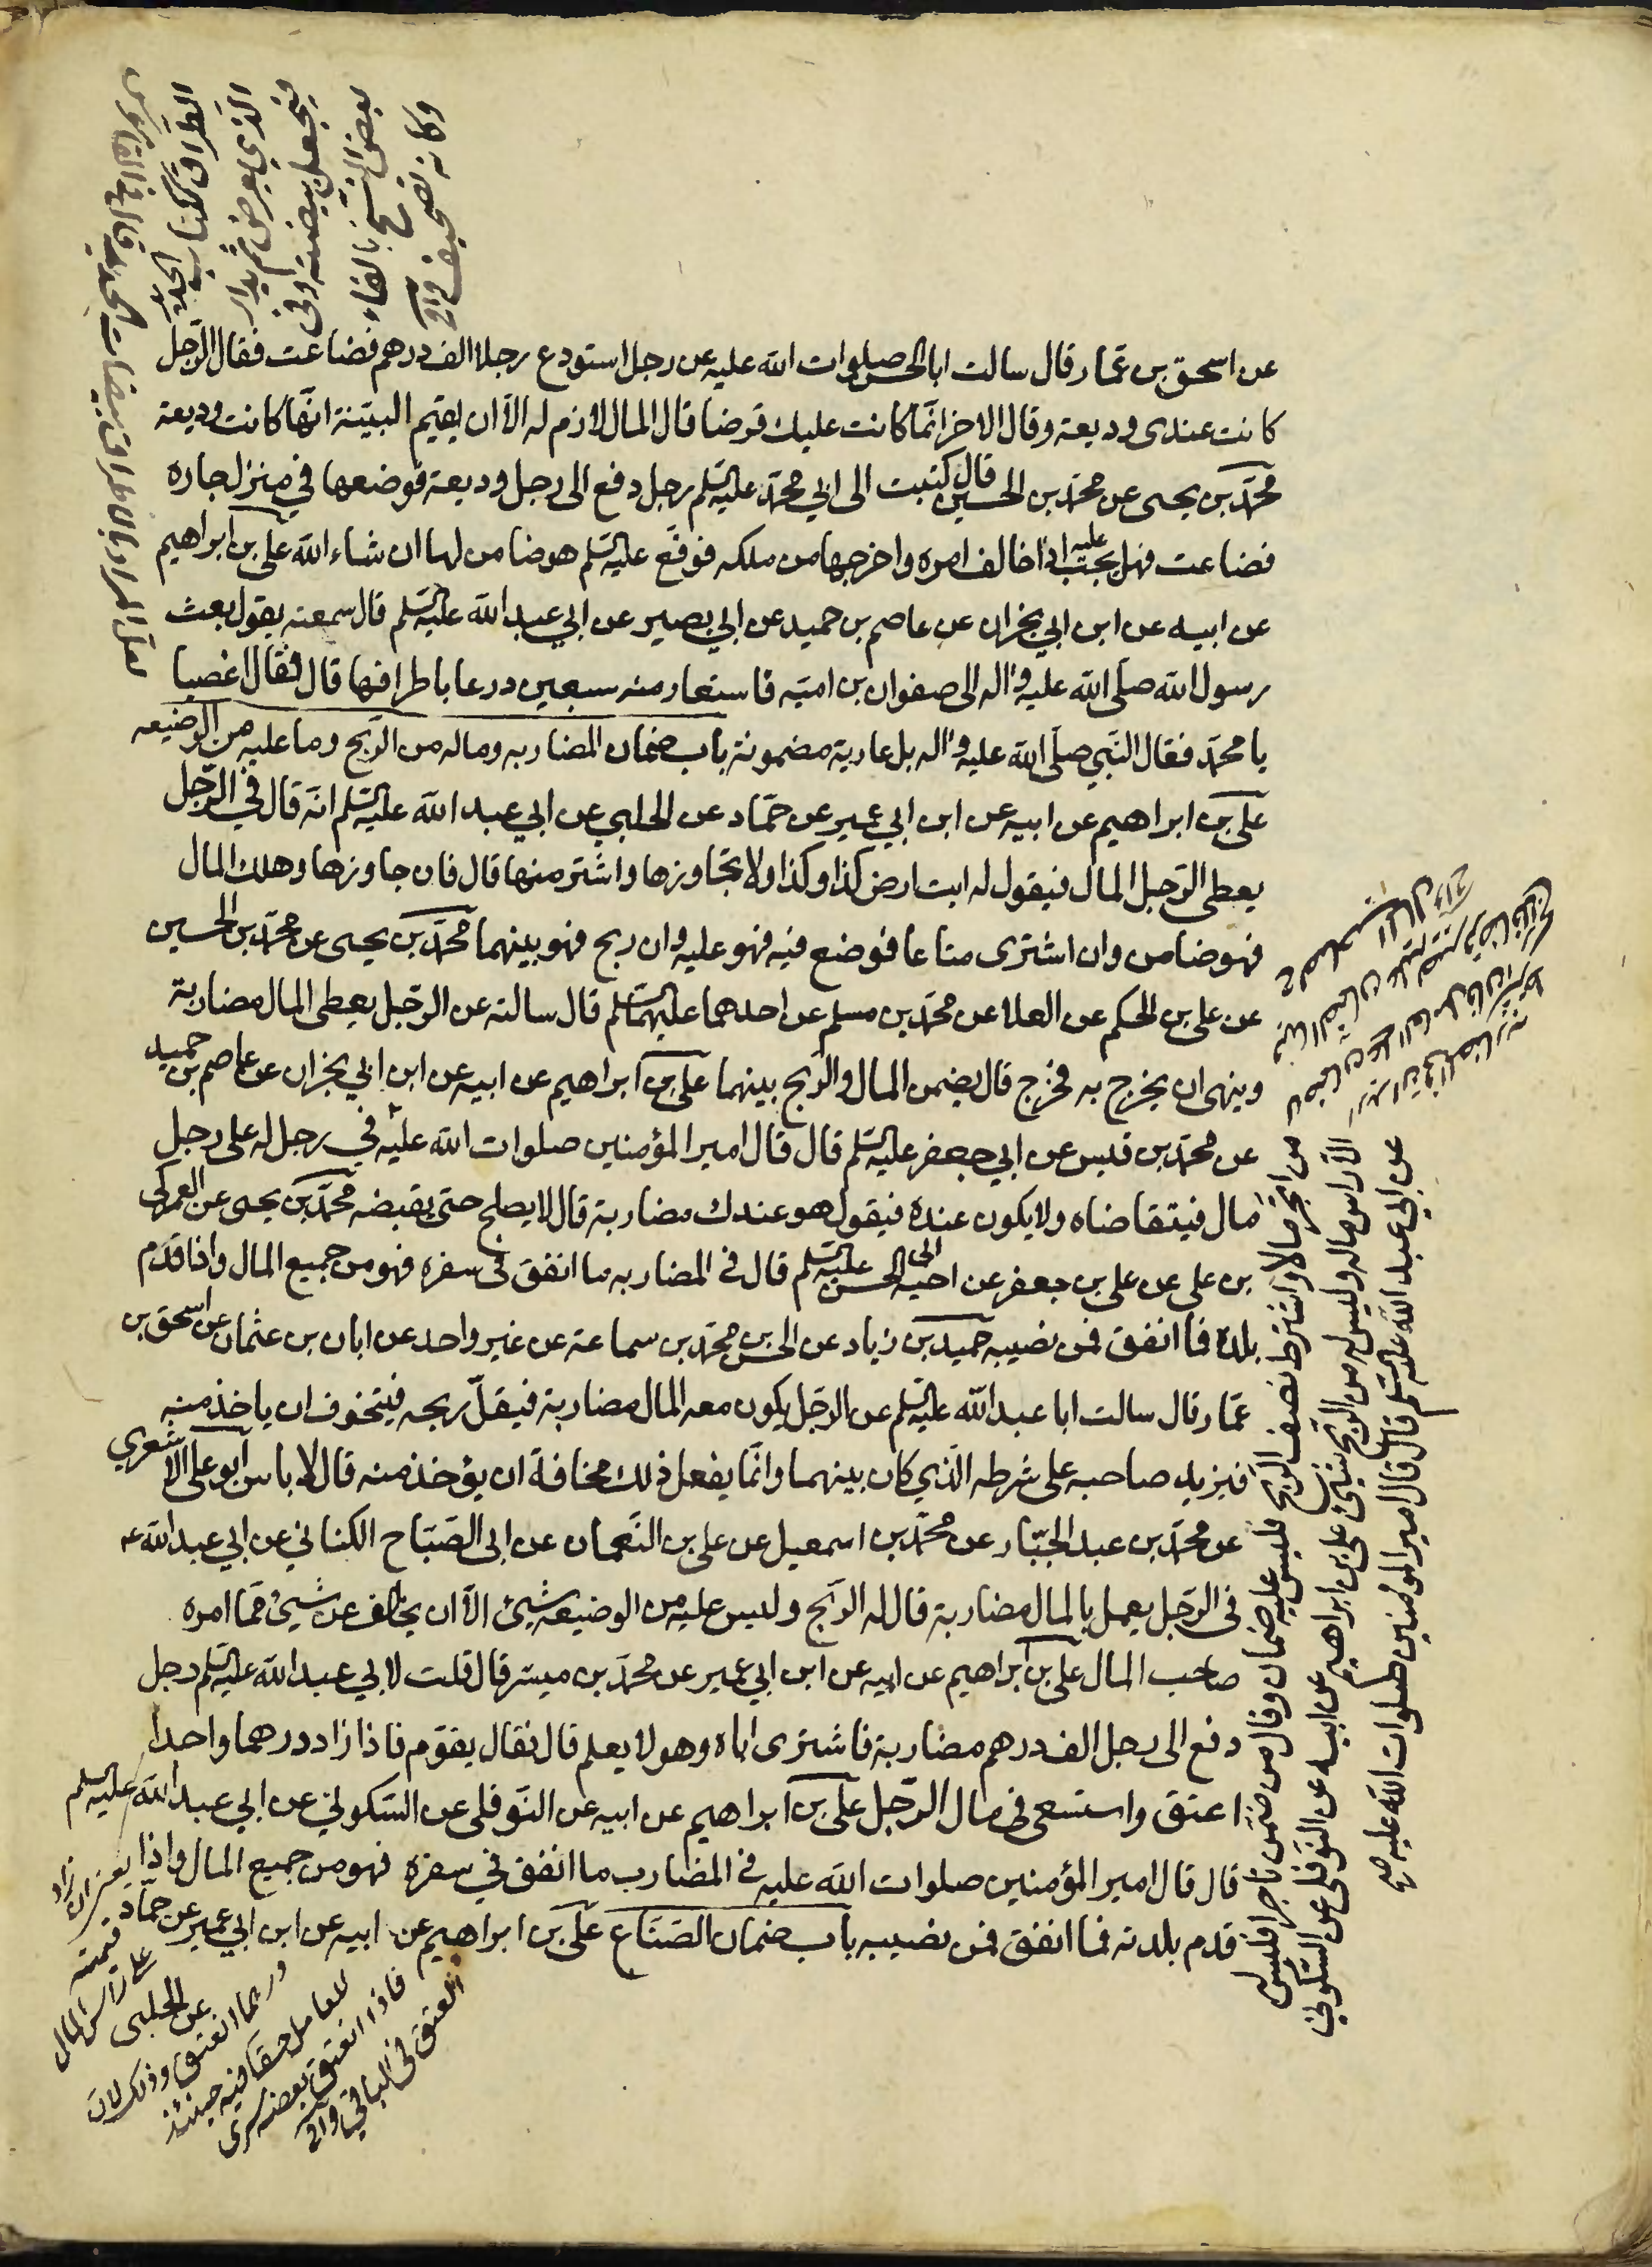 عن اسحق بن عمّار قال سالت ابا الحسن صلوات الله عليه عن رجل استودع رجلا الف درهم فضاعت فقال الرّجل
كانت عندى وديعة وقال الاخر انّما كانت عليك قرضا قال المال لازم له الّا ان يقيم البيّنة انّها كانت وديعة
محمّد بن يحيى عن محمّد بن الحسين قال كتبت الى ابي محمّد عليه السّلم رجل دفع الى رجل وديعة فوضعها في منزل جاره
فضاعت فهل يجب عليه اذا خالف امره واخرجها من ملكه فوقّع عليه السّلم هو ضامن لها ان شاء الله علي بن ابراهيم
عن ابيه عن ابن ابي نجران عن عاصم بن حميد عن ابي بصير عن ابي عبد الله عليه السّلم قال سمعته يقول بعث
رسول الله صلى الله عليه واله الى صفوان بن اميّة فاستعار منه سبعين درعا باطرافها قال فقال اغصبا
يا محمّد فقال النّبي صلّى الله عليه واله بل عارية مضمونة باب ضمان المضاربه وماله من الرّبح وما عليه من الوضيعه
علي بن ابراهيم عن ابيه عن ابن ابي عمير عن حمّاد عن الحلبي عن ابي عبد الله عليه السّلم انّه قال في الرّجل
يعطى الرّجل المال فيقول له ايت ارض كذا وكذا ولا تجاوزها واشتر منها قال فان جاوزها وهلك المال
فهو ضامن وان اشترى متاعا فوضع فيه فهو عليه وان ربح فهو بينهما محمّد بن يحيى عن محمّد بن الحسين
عن على بن الحكم عن العلا عن محمّد بن مسلم عن احدهما عليهما السّلم قال سالته عن الرّجل يعطى المال مضاربة
وينهى ان يخرج به فخرج قال يضمن المال والرّبح بينهما على بن ابراهيم عن ابيه عن ابن ابي نجران عن عاصم بن حميد
عن محمّد بن قيس عن ابي جعفر عليه السّلم قال قال امير المؤمنين صلوات الله عليه في رجل له على رجل
مال فيتقاضاه ولا يكون عنده فيقول هو عندك مضاربة قال لا يصلح حتى يقبضه محمّد بن يحيى عن العمركى
بن على عن على بن جعفر عن اخيه ابى الحسن عليه السّلم قال في المضاربه ما انفق في سفره فهو من جميع المال واذا قدم
بلده فما انفق فمن نصيبه حميد بن زياد عن الحسن بن محمّد بن سماعة عن غير واحد عن ابان بن عثمان عن اسحق بن
عمّار قال سالت ابا عبد الله عليه السّلم عن الرّجل يكون معه المال مضاربة فيقلّ ربحه فيتخوف ان ياخذ منه
فيزيد صاحبه على شرطه الّذي كان بينهما وانّما يفعل ذلك مخافة ان يؤخذ منه قال لا باس ابو على الاشعري
عن محمّد بن عبد الجبّار عن محمّد بن اسمعيل عن على بن النّعمان عن ابى الصّبّاح الكناني عن ابي عبد الله عه
في الرّجل يعمل بالمال مضاربة قال له الرّبح وليس عليه من الوضيعه شيئ الّا ان يخالف عن شيئ ممّا امره
صاحب المال على بن ابراهيم عن ابيه عن ابن ابي عمير عن محمّد بن ميسر قال قلت لابي عبد الله عليه السّلم رجل
دفع الى رجل الف درهم مضاربة فاشترى اباه وهو لا يعلم قال فقال يقوّم فاذا زاد درهما واحدا
اعتق واستسعى في مال الرّجل على بن ابراهيم عن ابيه عن النّوفلى عن السّكوني عن ابي عبد الله عليه السّلم
قال قال امير المؤمنين صلوات الله عليه في المضارب ما انفق في سفره فهو من جميع المال واذا
قدم بلدته فما انفق فمن نصيبه باب ضمان الصّنّاع على بن ابراهيم عن ابيه عن ابن ابي عمير عن حمّاد
عن الحلبى
الطراق ككتاب الحديد
الّذي يعرض ثم يدار
فيجعل بيضة وفى
بعض النسخ بالفاء
وكانه تصحيف وافى
من اتّجر مالا واشترط نصف الرّبح فليس عليه ضمان وقال من ضمّن تاجرا فليس له
الّا راس ماله وليس له من الرّبح شيئ على بن ابراهيم عن ابيه عن النّوفلى عن السّكوني
عن ابي عبد الله عليه السّلم قال قال امير المؤمنين صلوات الله عليه صح
يعنى ان زاد
قيمته
على راس المال
درهما انعتق وذلك لان
للعامل حقا فيه حينئذ
فاذا انعتق بعضه سرى
العتق في الباقي وافى